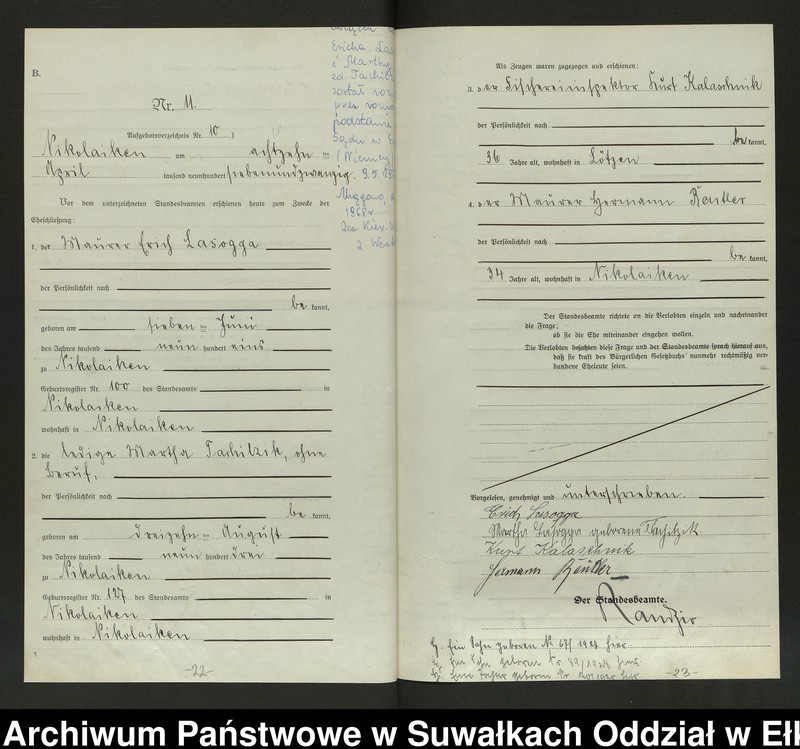 B.
Nr. 11.
Aufgebotsverzeichnis Nr. 10
Nikolaiken am achtzehn ten
April tausend neunhundert siebenundzwanzig.
Vor dem unterzeichneten Standesbeamten erschienen heute zum Zwecke der
Eheschließung:
1. der Maurer Erich Lasogga
der Persönlichkeit nach
be kannt,
geboren am sieben ten Juni
des Jahres tausend neun hundert eins
zu Nikolaiken
Geburtsregister Nr. 100 des Standesamts in
Nikolaiken
wohnhaft in Nikolaiken
2. die ledige Martha Tachilzik, ohne
Beruf,
der Persönlichkeit nach
be kannt,
geboren am dreizehn ten August
des Jahres tausend neun hundert drei
zu Nikolaiken
Geburtsregister Nr. 127 des Standesamts in
Nikolaiken
wohnhaft in Nikolaiken
-22-
Ericha
i Marthy
został
podstawie
Sądu w
(Niemcy)
1968 r.
Als Zeugen waren zugezogen und erschienen:
3. der Fischereiinspektor Kurt Kalaschnik
der Persönlichkeit nach
be kannt,
36 Jahre alt, wohnhaft in Lötzen
4. der Maurer Hermann Rentler
der Persönlichkeit nach
be kannt,
34 Jahre alt, wohnhaft in Nikolaiken
Der Standesbeamte richtete an die Verlobten einzeln und nacheinander
die Frage:
ob sie die Ehe miteinander eingehen wollen.
Die Verlobten bejahten diese Frage und der Standesbeamte sprach hierauf aus,
daß sie kraft des Bürgerlichen Gesetzbuchs nunmehr rechtmäßig ver-
bundene Eheleute seien.
Vorgelesen, genehmigt und unterschrieben.
Erich Lasogga
Martha Lasogga geborene Tachilzik
Kurt Kalaschnik
Hermann Rentler
Der Standesbeamte.
Ein Sohn geboren Nr 67/1928 hier.
Ein Sohn geboren Nr
geboren Nr. hier
-23-
Archiwum Państwowe w Suwałkach Oddział w Ełk